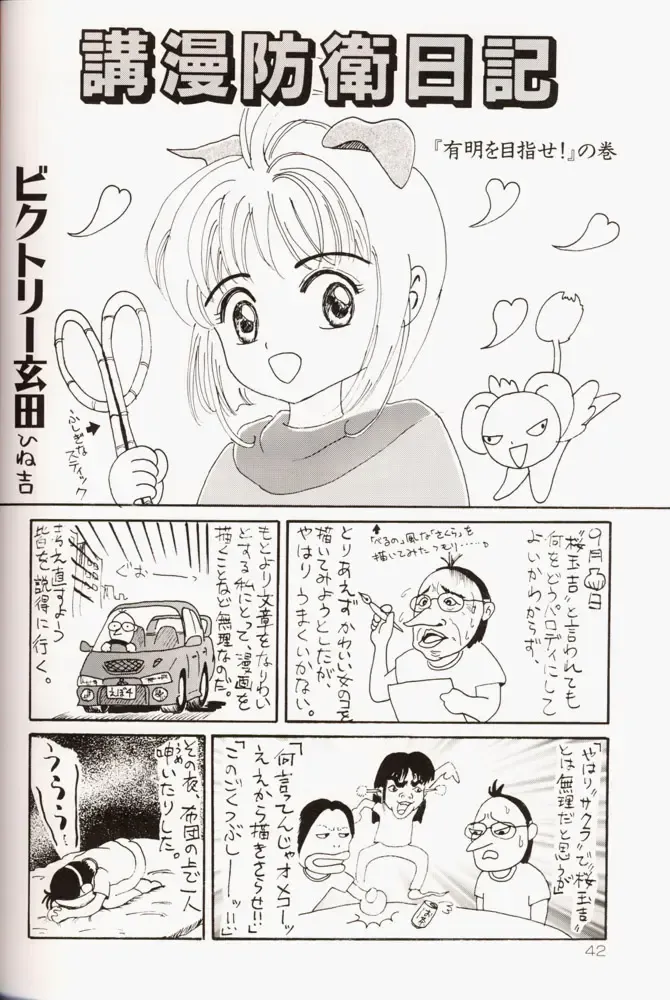 講漫防衛日記
『有明を目指せ!』の巻
ビクトリー玄田
ひね吉
ふしぎな
スティック
9月
日
"桜玉吉"と言われても
何をどうパロディにして
よいかわからず、
↑「べるの」風な「さくら」を
描いてみたつもり……。
とりあえずかわいい女のコを
描いてみようとしたが、
やはりうまくいかない。
もとより文章をなりわい
とする私にとって、漫画を
描くことなど無理なのだ。
ぐおーーっ
えぼ4
考え直すよう
皆を説得に行く。
「やはり"サクラ"で"桜玉吉"
とは無理だと思うが」
「何言ってんじゃオメコーッ
ええから描きさらせ!!」
「このごくつぶしーーッ!!」
その夜、布団の上で一人
呻いたりした。
うめ
うううっ…
42